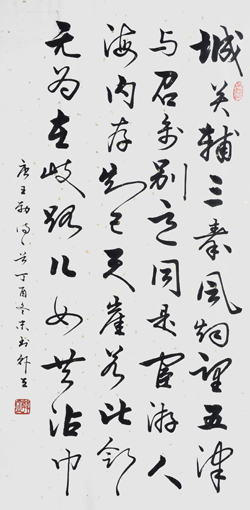 城阙辅三秦风烟望五津
与君离别意同是宦游人
海内存知己天崖若比邻
无为在歧路儿女共沾巾
唐王勃诗一首丁酉冬末书